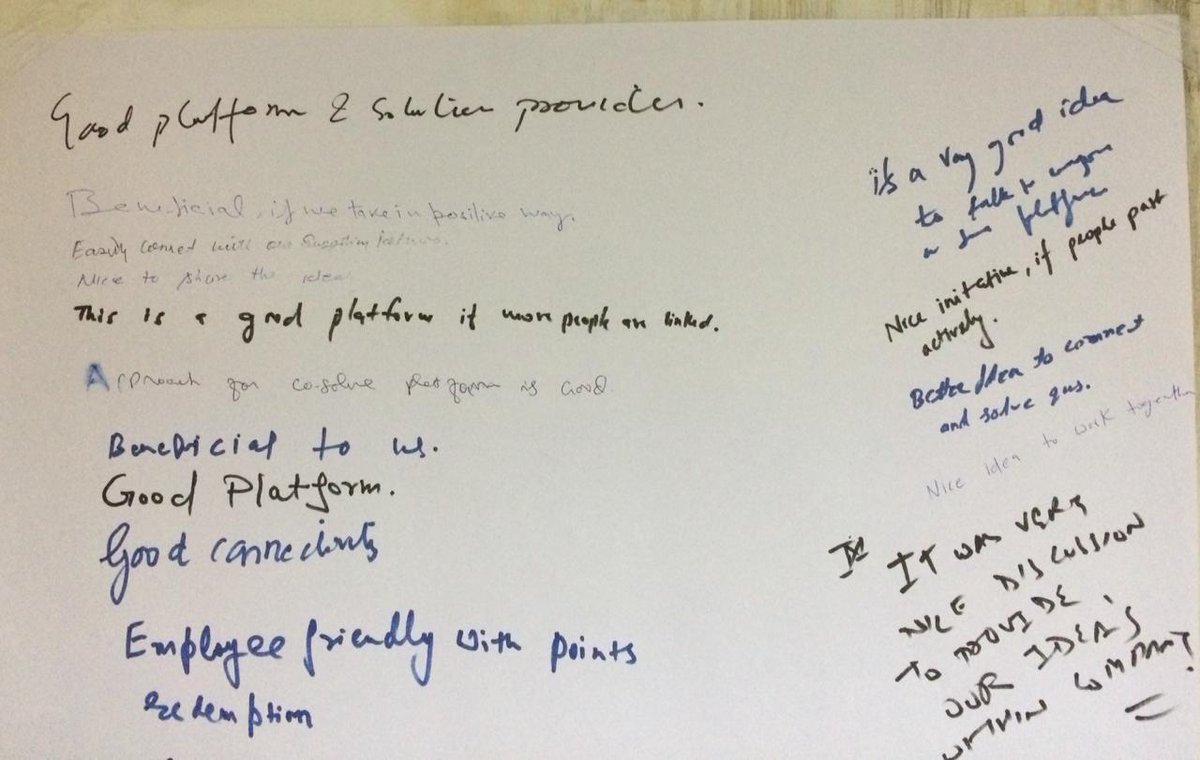 Good platform & solution provider.
Beneficial, if we take in positive way.
Easily connect with
Nice to share the idea
This is a good platform if more people are linked.
Approach for co-solve platform is Good
Beneficial to us.
Good Platform.
Good connectivity
Employee friendly with points
redemption
it's a very good idea
to talk to
platform
Nice initiative, if people part
actively.
Better Idea to connect
and solve
Nice idea to work together
IT was VERY
NICE DISCUSSION
TO PROVIDE
OUR IDEA'S
WITHIN COMPANY!